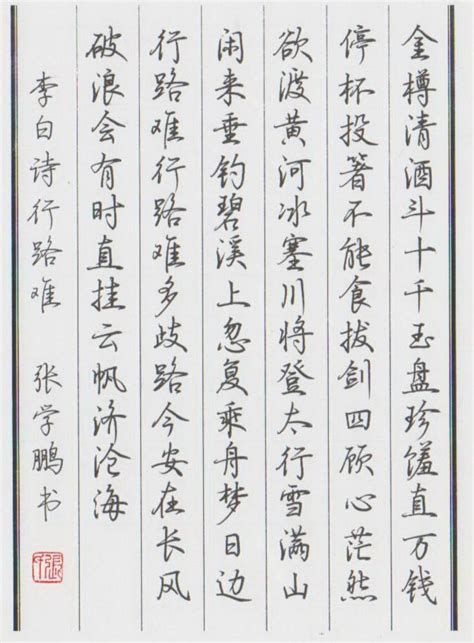 金樽清酒斗十千玉盘珍馐直万钱
停杯投箸不能食拔剑四顾心茫然
欲渡黄河冰塞川将登太行雪满山
闲来垂钓碧溪上忽复乘舟梦日边
行路难行路难多歧路今安在长风
破浪会有时直挂云帆济沧海
李白诗行路难 张学鹏书